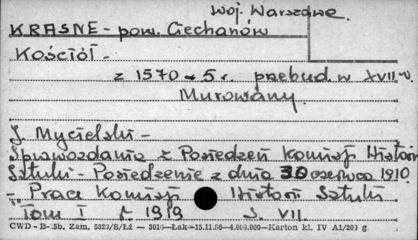 Woj. Warszawa.
KRASNE - pow. Ciechanów
Kościół -
z 1570 - 5 r. przebud. w XVII w.
Murowany.
J. Mycielski -
Sprawozdania z Posiedzeń Komisji Historii
Sztuki - Posiedzenie z dnia 30 czerwca 1910
- Prace Komisji Historii Sztuki
Tom I r. 1919 s. VII.
CWD - B-5b, Zam. 5823/S/Łż — 3010—Łak—15.11.56—4.000.000—Karton kl. IV A1/200 g